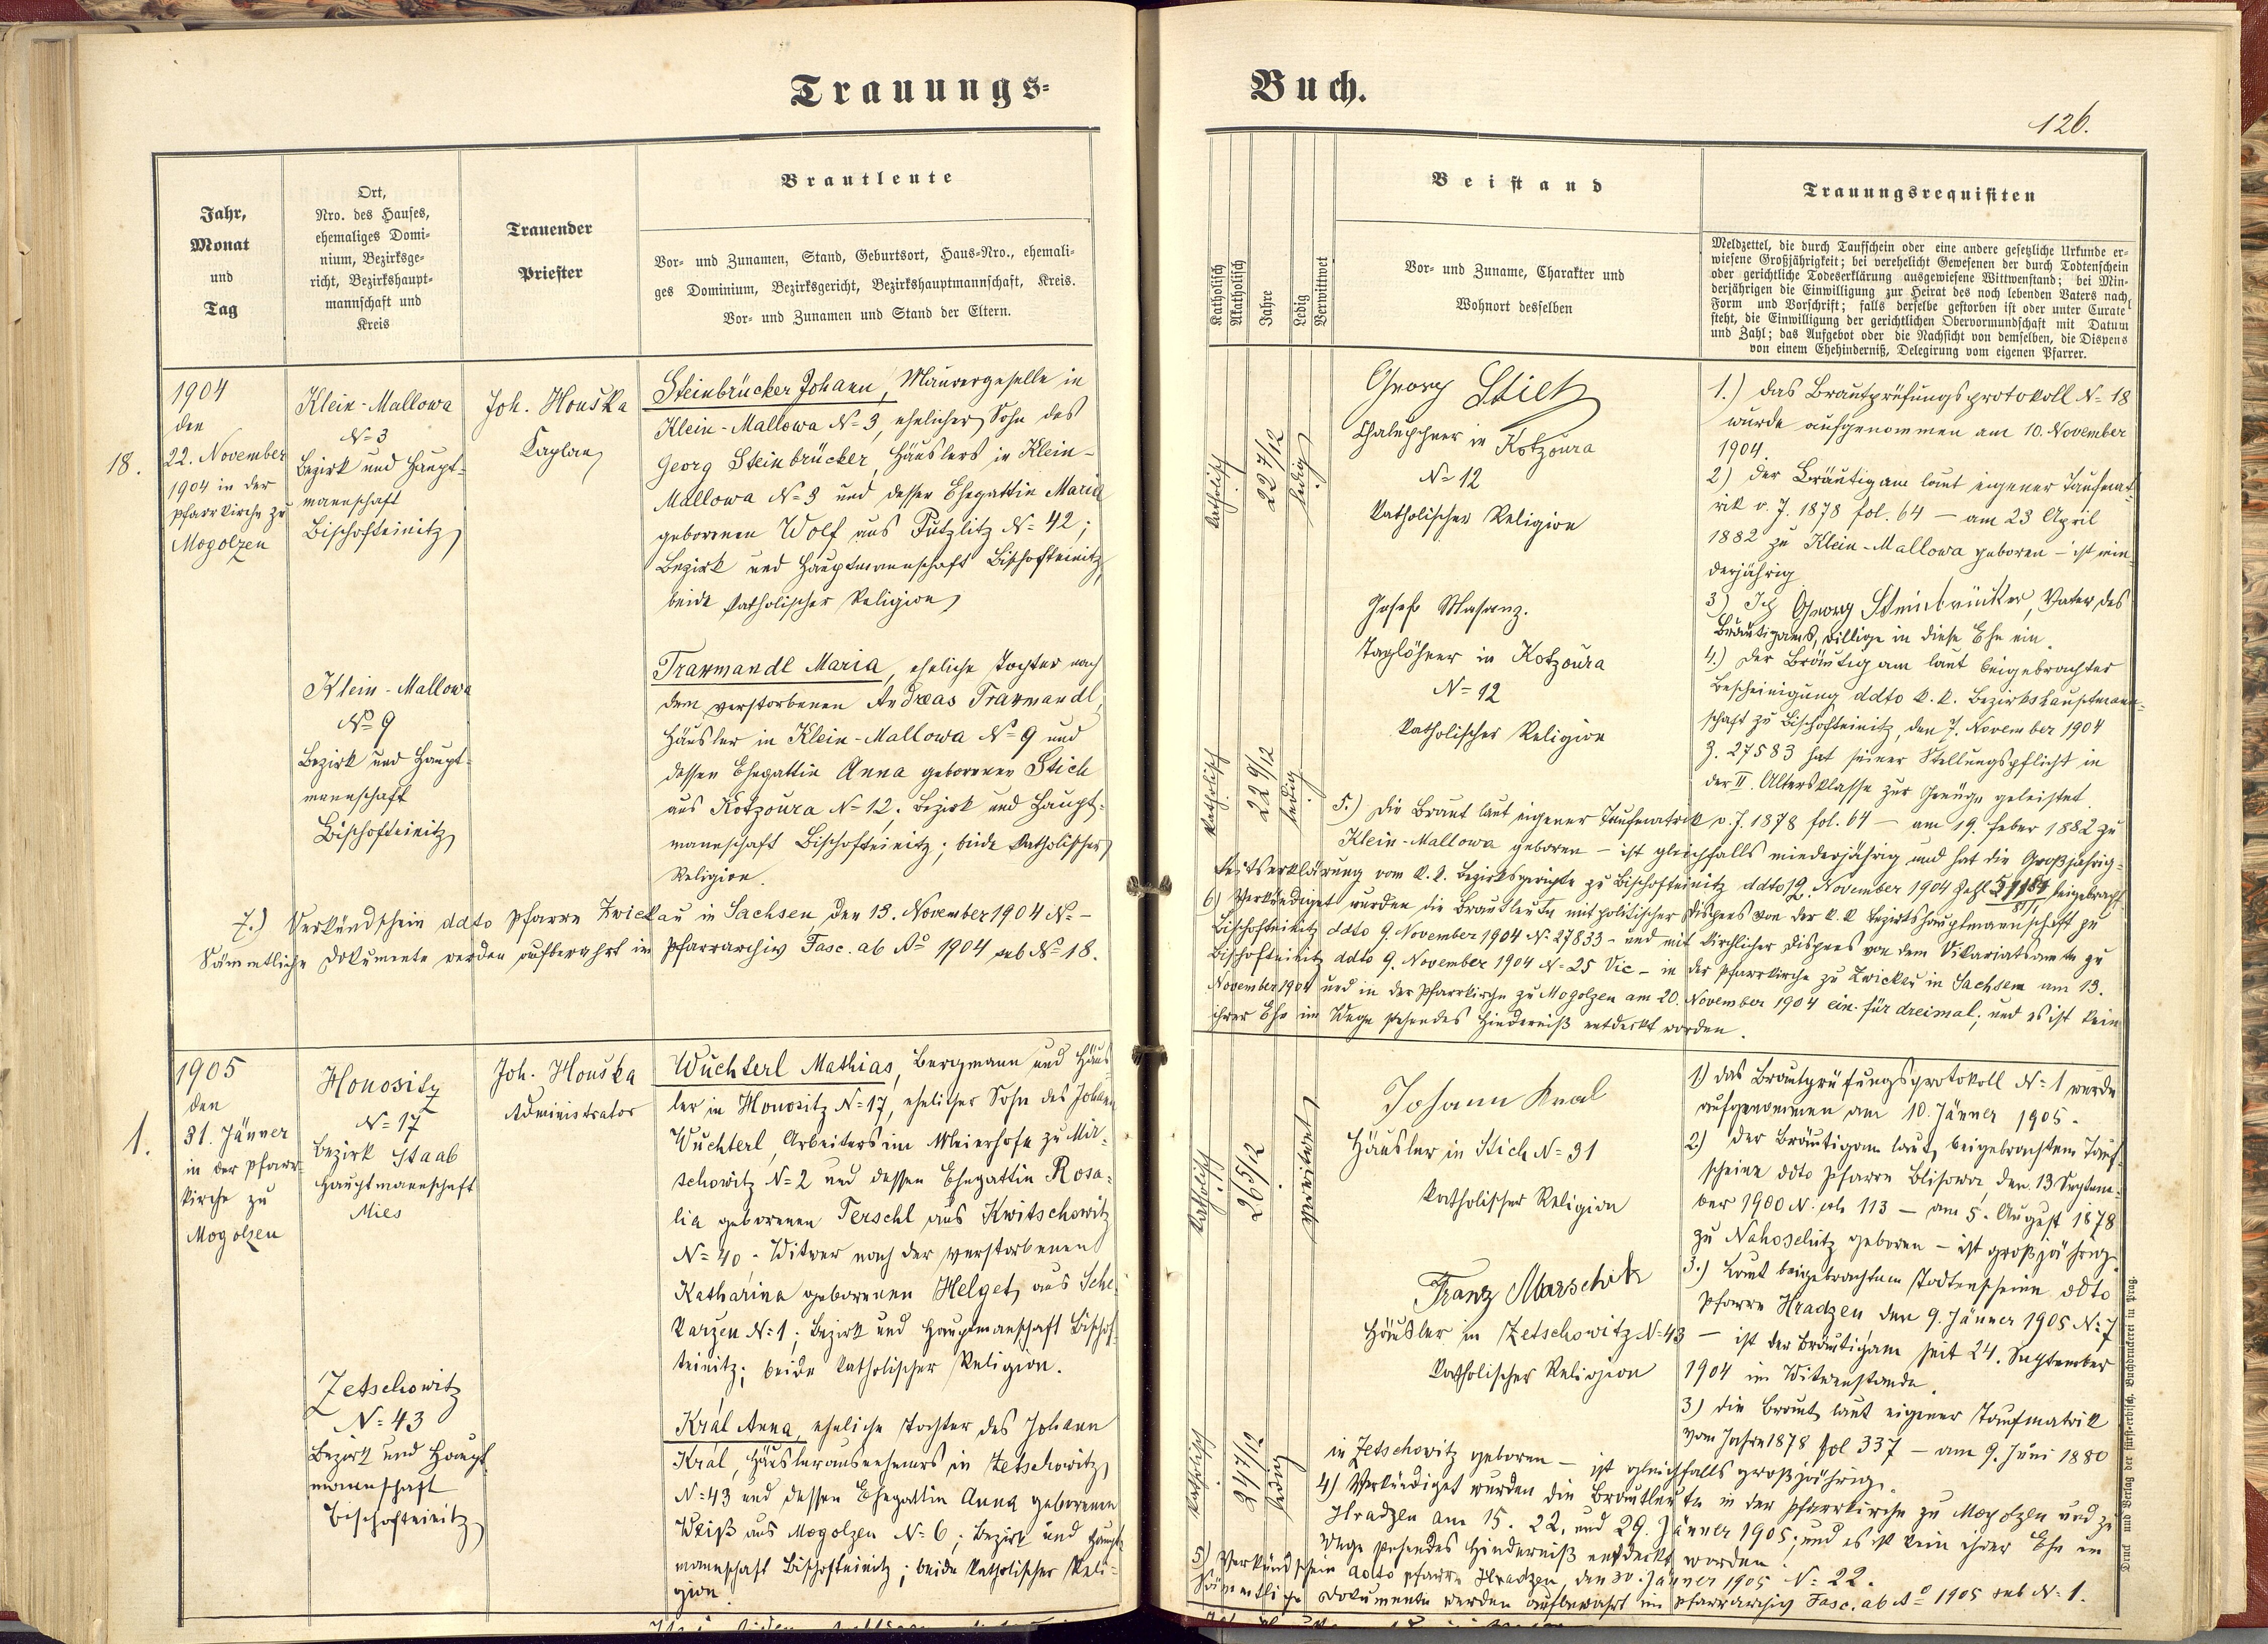 Trauungs-
Jahr,
Monat
und
Tag
Ort,
Nro. des Hauses,
ehemaliges Domi-
nium, Bezirksge-
richt, Bezirkshaupt-
mannschaft und
Kreis
Trauender
Priester
Brautleute
Vor- und Zunamen, Stand, Geburtsort, Haus-Nro., ehemali-
ges Dominium, Bezirksgericht, Bezirkshauptmannschaft, Kreis.
Vor- und Zunamen und Stand der Eltern.
18.
1904
den
22. November
1904 in der
Pfarrkirche zu
Mogolzen
Klein-Mallowa
N=3
Bezirk und Haupt-
mannschaft
Bischofteinitz
Joh. Houška
Kaplan
Steinbrücker Johann, Maurergeselle in
Klein-Mallowa N=3, ehelicher Sohn des
Georg Steinbrücker, Häuslers in Klein-
Mallowa N=3 und dessen Ehegattin Maria
geborenen Wolf aus Putzlitz N=42;
Bezirk und Hauptmannschaft Bischofteinitz,
beide katholischer Religion
Klein-Mallowa
No 9
Bezirk und Haupt-
mannschaft
Bischofteinitz
Traxmandl Maria, eheliche Tochter nach
dem verstorbenen Andreas Traxmandl,
Häusler in Klein-Mallowa N=9 und
dessen Ehegattin Anna geborenen Stich
aus Kotzoura N=12. Bezirk und Haupt-
mannschaft Bischofteinitz; beide katholischer
Religion.
7.) Verkündschein ddto Pfarre Zwickau in Sachsen, den 13. November 1904 N=-
Sämmtliche Dokumente werden aufbewahrt im Pfarrarchiv Fasc. ab Ao 1904 sub N=18.
1.
1905
den
31. Jänner
in der Pfarr-
kirche zu
Mogolzen
Honositz
N=17
Bezirk Staab
Hauptmannschaft
Mies
Joh. Houška
Administrator
Wuchterl Mathias, Bergmann und Häus-
ler in Honositz N=17, ehelicher Sohn des Johann
Wuchterl, Arbeiters im Meierhofe zu Mir-
schowitz N=2 und dessen Ehegattin Rosa-
lia geborenen Terschl aus Kwitschowitz
N=40. Witwer nach der verstorbenen
Katharina geborenen Helget, aus Sche-
karzen N=1; Bezirk und Hauptmanschaft Bischof-
teinitz; beide katholischer Religion.
Zetschowitz
N=43
Bezirk und Haupt-
mannschaft
Bischofteinitz
Král Anna, eheliche Tochter des Johann
Král, Häuslerausnehmers in Zetschowitz
N=43 und dessen Ehegattin Anna geborenen
Weiß aus Mogolzen N=6; Bezirk und Haupt-
mannschaft Bischofteinitz; beide katholischer Reli-
gion
Buch.
126.
Katholisch
Akatholisch
Jahre
Ledig
Verwittwet
Beistand
Vor- und Zuname, Charakter und
Wohnort desselben
Trauungsrequisiten
Meldzettel, die durch Taufschein oder eine andere gesetzliche Urkunde er-
wiesene Großjährigkeit; bei verehelicht Gewesenen der durch Todtenschein
oder gerichtliche Todeserklärung ausgewiesene Wittwenstand; bei Min-
derjährigen die Einwilligung zur Heirat des noch lebenden Vaters nach
Form und Vorschrift; falls derselbe gestorben ist oder unter Curatel
steht, die Einwilligung der gerichtlichen Obervormundschaft mit Datum
und Zahl; das Aufgebot oder die Nachsicht von demselben, die Dispens
von einem Ehehinderniß, Delegirung vom eigenen Pfarrer.
katholisch
22 7/12
ledig
Georg Stich
Chalupner in Kotzoura
N=12
katholischer Religion
Josef Masanz.
Taglöhner in Kotzoura
N=12
katholischer Religion
katholisch
22 9/12
ledig
1.) das Brautprüfungsprotokoll N=18
wurde aufgenommen am 10. November
1904.
2) der Bräutigam laut eigener Taufmat-
rik v. J. 1878 fol. 64 - am 23 April
1882 zu Klein-Mallowa geboren - ist min-
derjährig
3) Ich Georg Steinbrücker, Vater des
Bräutigams, willige in diese Ehe ein.
4.) Der Bräutigam laut beigebrachter
Bescheinigung ddto k. k. Bezirkshauptmann-
schaft zu Bischofteinitz, den 7. November 1904
Z. 27583 hat seiner Stellungspflicht in
der II. Altersklasse zur Genüge geleistet.
5.) Die Braut laut eigener Taufmatrik v. J. 1878 fol. 64 - am 19. Feber 1882 zu
Klein-Mallowa geboren - ist gleichfalls minderjährig und hat die Großjährig-
keitserklärung vom k. k. Bezirksgerichte zu Bischofteinitz ddto 12. November 1904 Zahl beigebracht
6) Verkündiget wurden die Brautleute mit politischer Dispens von der k. k Bezirkshauptmannschaft zu
Bischofteinitz ddto 9. November 1904 N=27833 - und mit kirchlicher Dispens von dem Vikariatsamte zu
Bischofteinitz ddto 9. November 1904 N=25 Vic - in der Pfarrkirche zu Zwickau in Sachsen am 13.
November 1904 und in der Pfarrkirche zu Mogolzen am 20. November 1904 ein- für dreimal; und es ist kein
ihrer Ehe im Wege stehendes Hinderniß entdeckt worden.
katholisch
26 5/12
verwitwet
Johann Kral
Häusler in Stich N=31
katholischer Religion
Franz Marschik
Häusler in Zetschowitz N=43
katholischer Religion
katholisch
24 7/12
ledig
1) das Brautprüfungsprotokoll N=1 wurde
aufgenommen am 10. Jänner 1905.
2) der Bräutigam laut beigebrachtem Tauf-
scheine ddto Pfarre Blisowa, den 13 Septem-
ber 1900 N. 113 - am 5. August 1878
zu Nahoschitz geboren - ist großjährig.
3.) Laut beigebrachtem Todtenscheine ddto
Pfarre Hradzen den 9. Jänner 1905 N=7
- ist der Bräutigam seit 24. September
1904 im Witwenstande.
3) die Braut laut eigener Taufmatrik
vom Jahre 1878 fol 337 - am 9. Juni 1880
in Zetschowitz geboren - ist gleichfalls großjährig.
4) Verkündiget wurden die Brautleute in der Pfarrkirche zu Mogolzen und zu
Hradzen am 15. 22. und 29. Jänner 1905; und es ist kein ihrer Ehe im
Wege stehendes Hinderniß entdeckt worden.
5) Verkündschein ddto Pfarre Hradzen, den 30. Jänner 1905 N=22.
Sämmtliche Dokumente werden aufbewahrt im Pfarrarchiv Fasc. ab Ao 1905 sub N=1.
Druck und Verlag der fürst-erzbisch. Buchdruckerei in Prag.